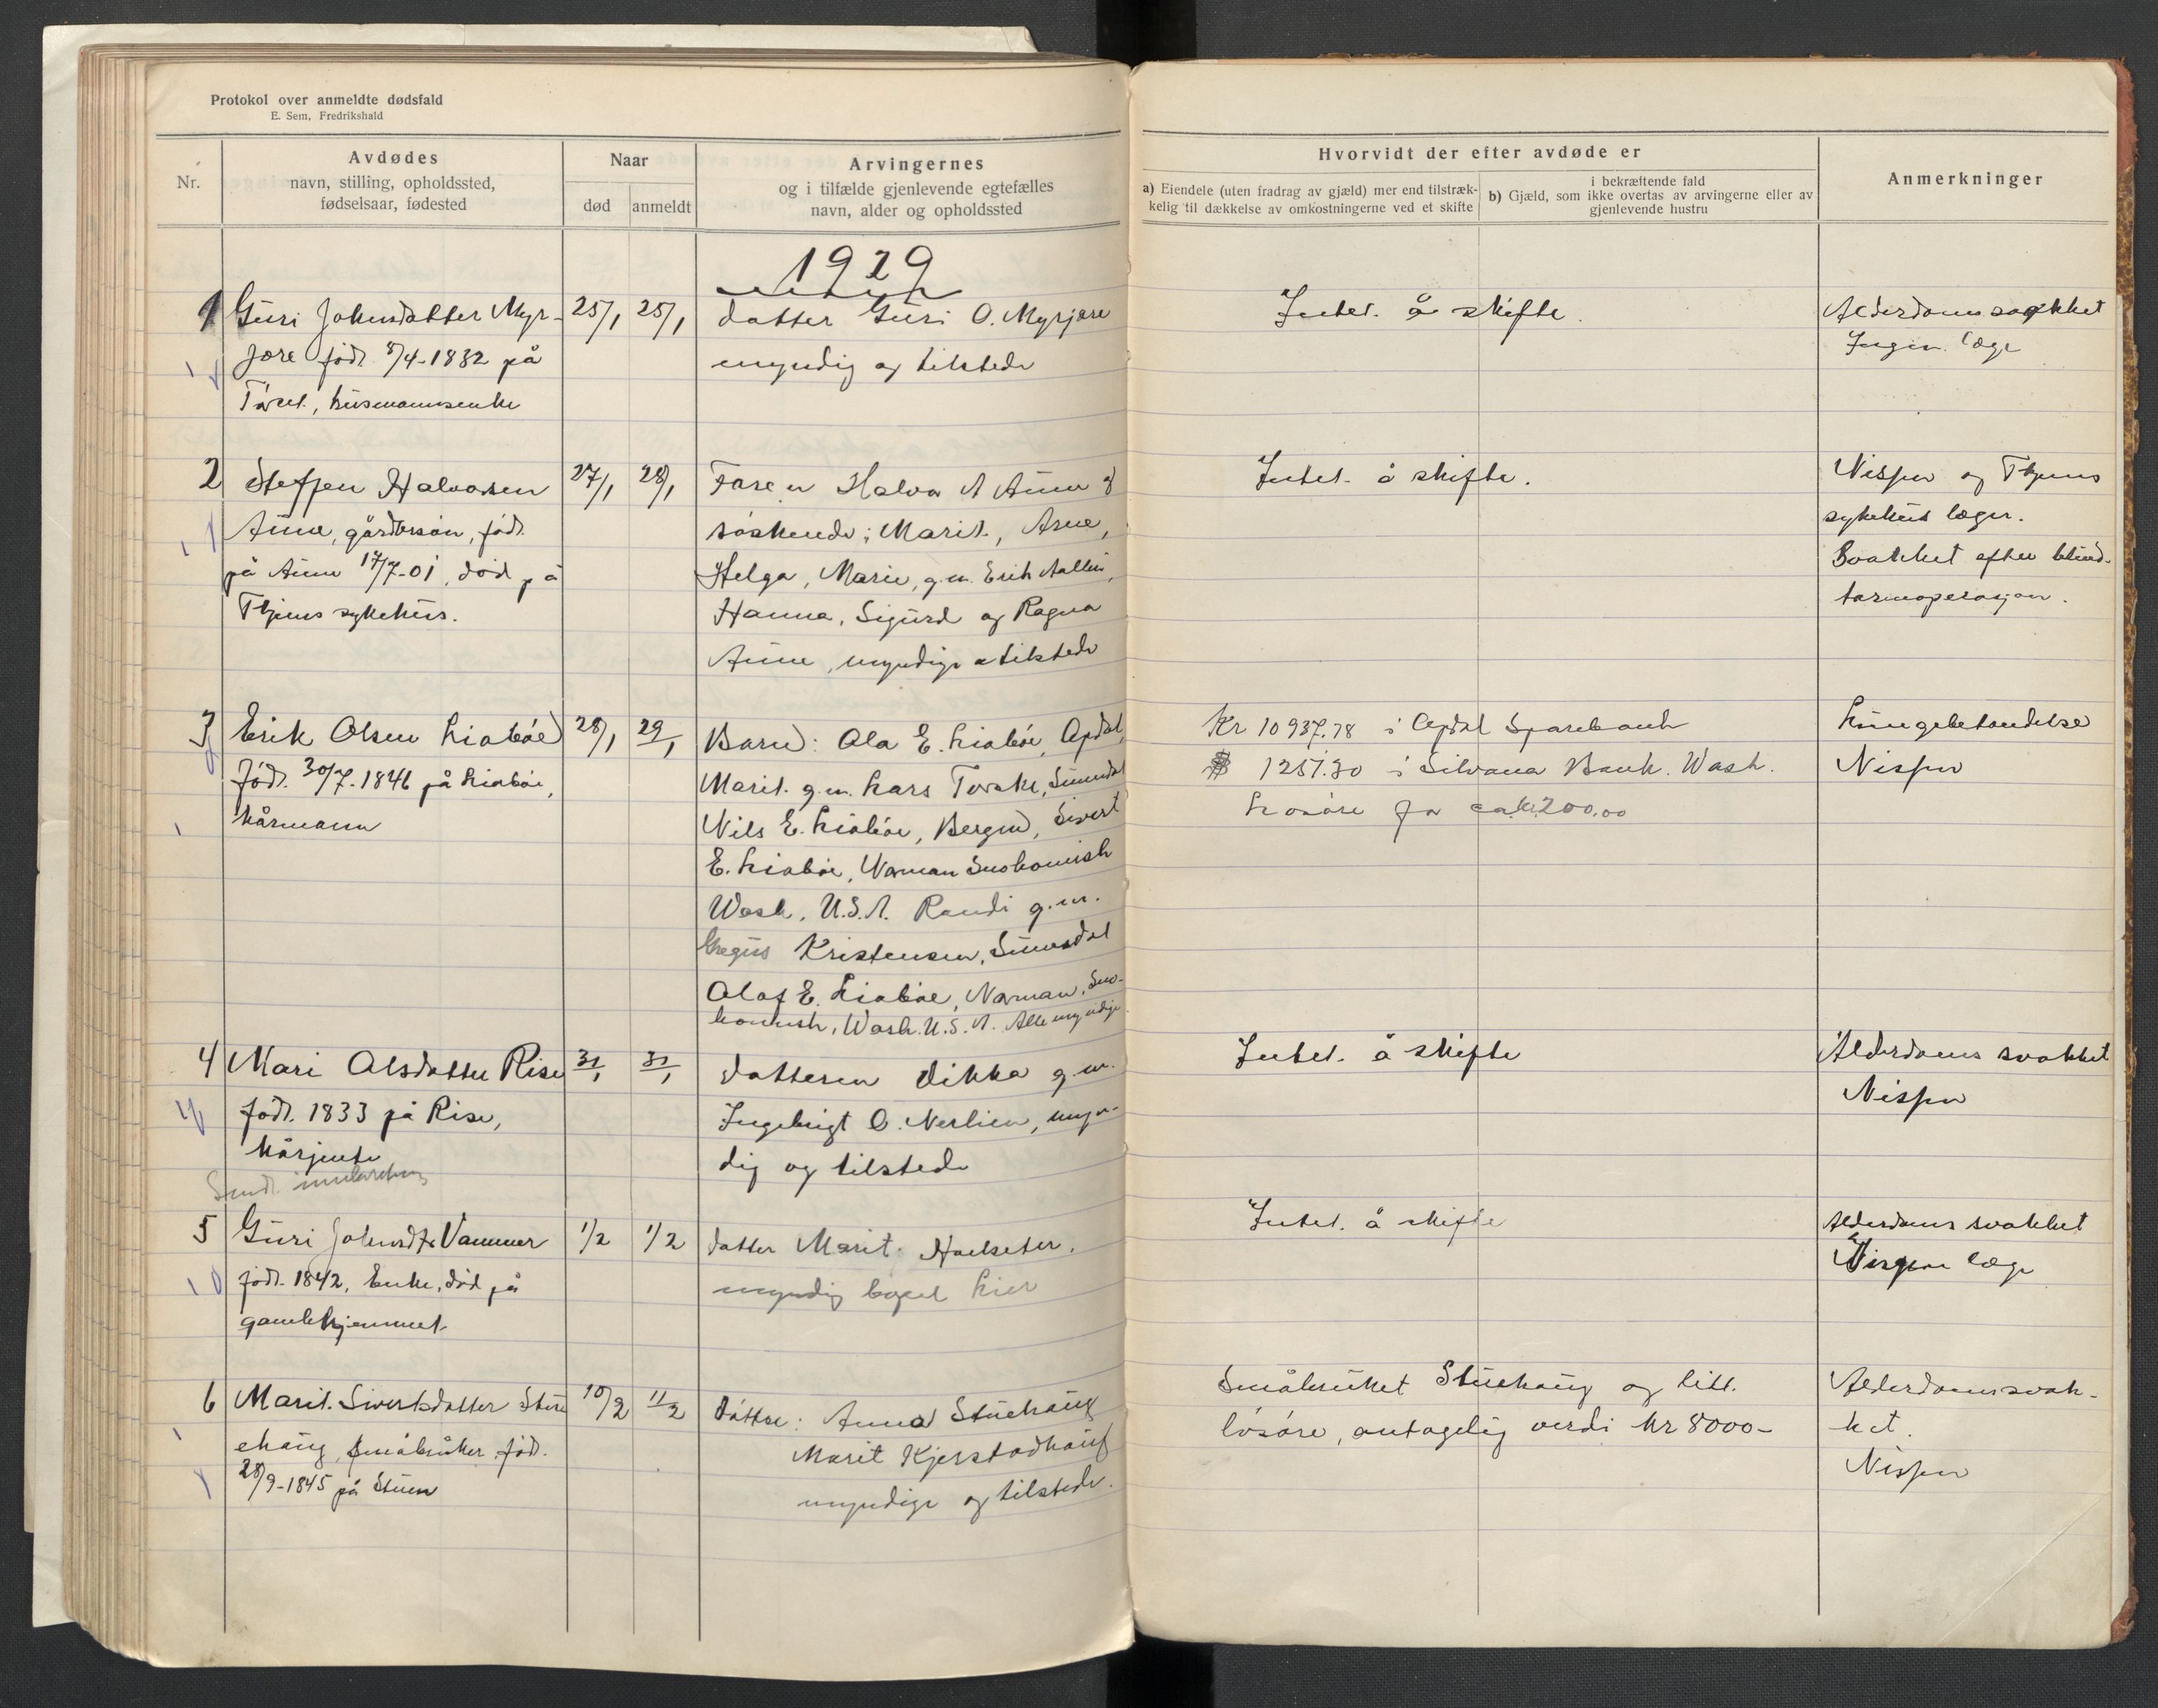 Protokol over anmeldte dødsfald
E. Sem, Fredrikshald
Nr.
Avdødes
navn, stilling, opholdssted,
fødselsaar, fødested
Naar
død
anmeldt
Arvingernes
og i tilfælde gjenlevende egtefælles
navn, alder og opholdssted
Hvorvidt der efter avdøde er
a) Eiendele (uten fradrag av gjæld) mer end tilstræk-
kelig til dækkelse av omkostningerne ved et skifte
i bekræftende fald
b) Gjæld, som ikke overtas av arvingerne eller av
gjenlevende hustru
Anmerkninger
1929
1
Guri Johnsdatter Myr-
jøre født 8/4-1832 på
husmannsenke
25/1
25/1
datter Guri O. Myrjøre
myndig og tilstede
Intet å skifte.
Alderdomssvakket
Ingen læge
2
Steffen Halvorsen
Aune, gårdbrsøn, født
på Aune 17/7-01, død på
Thjems sykehus.
27/1
28/1
Faren Halvor A Aune og
søskende; Marit, Arne,
Helga, Marie, g.m. Erik
Hanna, Sigurd og Ragna
Aune, myndige a tilstede
Intet å skifte.
Nissen og Thjems
sykehus læger.
Svakket efter blind-
tarmoperasjon.
3
Erik Olsen Liabøe
født 30/7-1846 på Liabøe,
kårmann
28/1
29/1
Barn: Ola E. Liabøe, Opdal,
Marit g.m. Lars Torske, Sunndal
Nils E. Liabøe, Bergen, Sivert
E. Liabøe, Norman Snohomish
Wash, U.S.A. Randi g.m.
Kristensen, Sunndal
Olaf E. Liabøe, Norman, Sno-
homish, Wash. U.S.A. Alle myndige.
Kr 10937.78 i Opdal Sparebank
$ 1257.30 i Silvana Bank. Wash.
Løsøre for ca kr 200,00
Lungebetendelse
Nissen
4
Mari Olsdatter Rise
født 1833 på Rise,
kårjente
31/1
31/1
datteren Dikka g.m.
Ingebrigt O. Nerlien, myn-
dig og tilstede
Intet å skifte
Alderdoms svakket
Nissen
5
Guri Johnsdtr Vammer
født 1842, Enke, død på
gamlehjemmet
1/2
1/2
datter Marit Hoelseter.
myndig bopel hier
Intet å skifte
Alderdoms svakket
Nissen læge
6
Marit Sivertsdatter Stu
ehaug, småbruker, født
28/9-1845 på Stuen
10/2
11/2
døttre: Anna Stuehaug
Marit Kjerstadhaug
myndige og tilstede.
Småbruket Stuehaug og litt
løsøre, antagelig verdi kr 8000-
Alderdomssvak-
ket.
Nissen